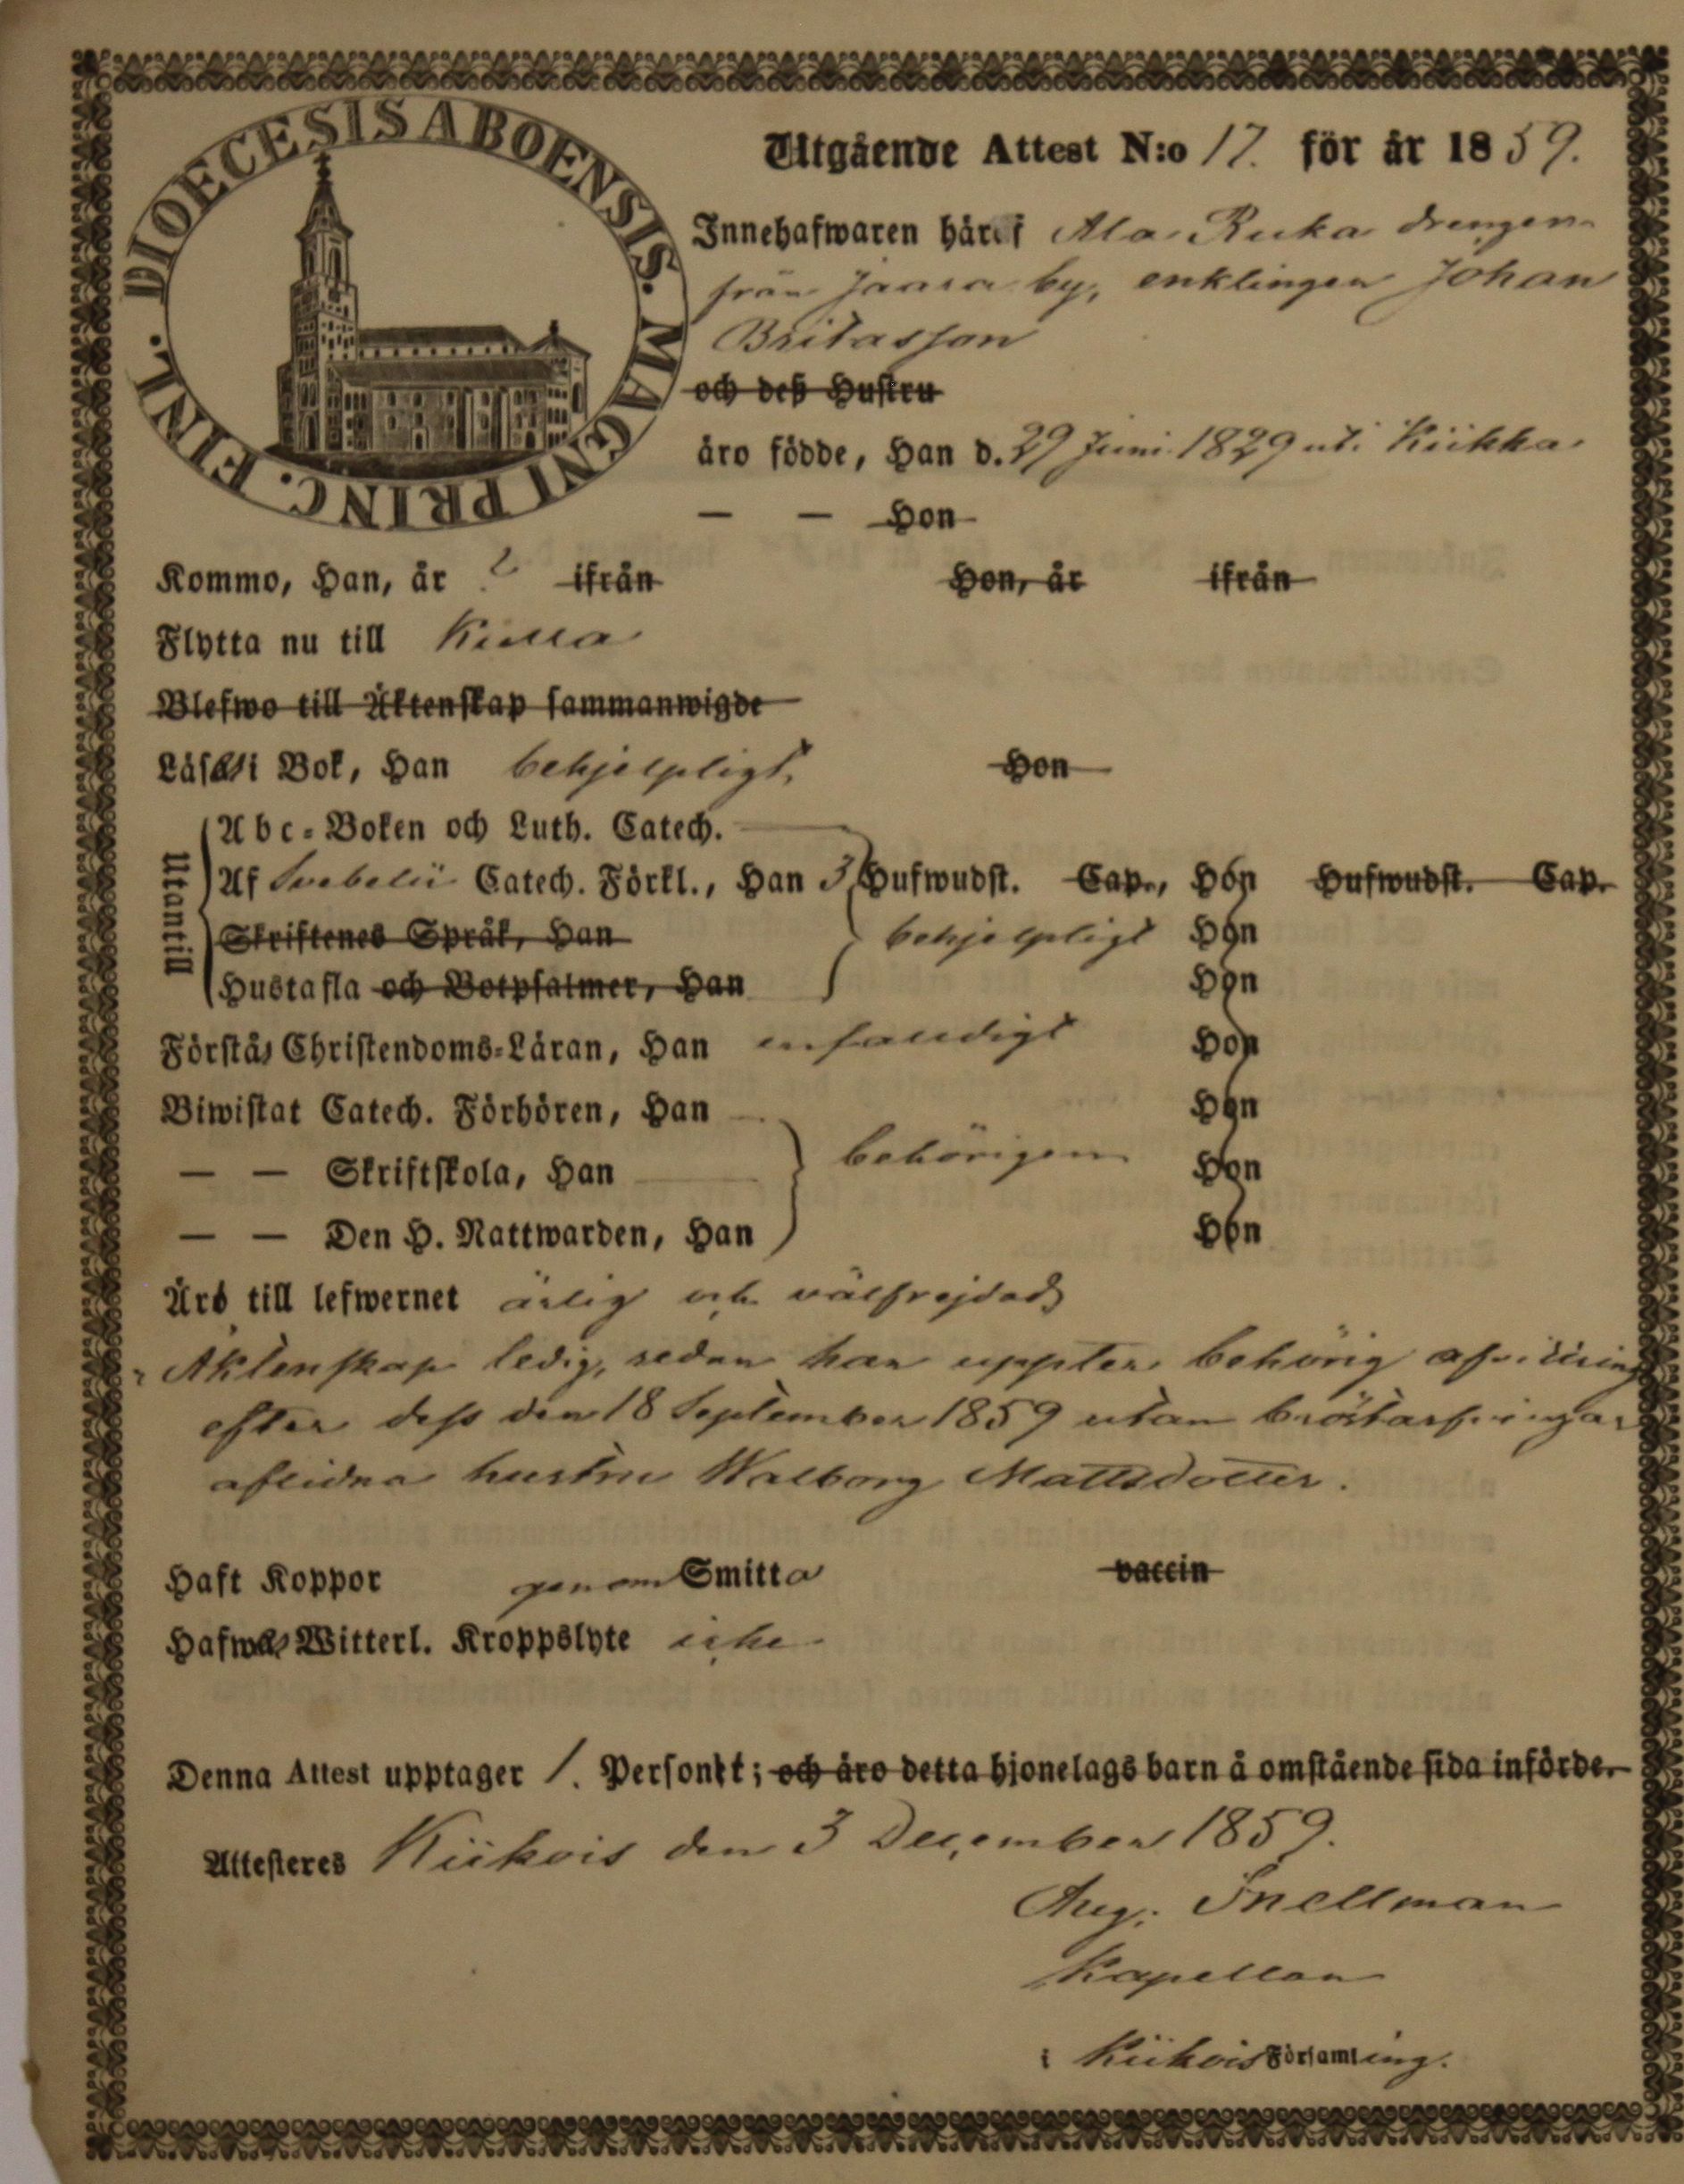 DIOECESIS ABOENSIS. MAGNI PRINC. FINL.
Utgående Attest N:o 17. för år 1859.
Innehafwaren häraf Ala Ruka drengen
från Jaara by, enklingen Johan
Britasson
och deß Hustru
äro födde, Han d. 29 Juni 1829 uti Kiikka
— — Hon
Kommo, Han, år ? ifrån Hon, år ifrån
Flytta nu till
Blefwo till Äktenskap sammanwigde
Läser i Bok, Han behjelpligt, Hon
Utantill
Abc-Boken och Luth. Catech.
Af Svebelii Catech. Förkl., Han 3 Hufwudst. Cap., Hon Hufwudst. Cap.
Skriftenes Språk, Han behjelpligt Hon
Hustafla och Botpsalmer, Han Hon
Förstås Christendoms-Läran, Han enfaldigt Hon
Biwistat Catech. Förhören, Han Hon
— — Skriftskola, Han behörigen Hon
— — Den H. Nattwarden, Han Hon
Äro till lefwernet ärlig och välfrejdad,
Äktenskap ledig, sedan han uppter behörig afvittring
efter dess den 18 September 1859 utan bröstarfvingar
aflidna hustru Walborg Mattsdotter.
Haft Koppor genom Smitta vaccin
Hafwer Witterl. Kroppslyte icke
Denna Attest upptager 1. Person; och äro detta hjonelags barn å omstående sida införde.
Attesteres Kiikois den 3 December 1859.
Aug. Snellman
Kapellan
i Kiikois Församling.